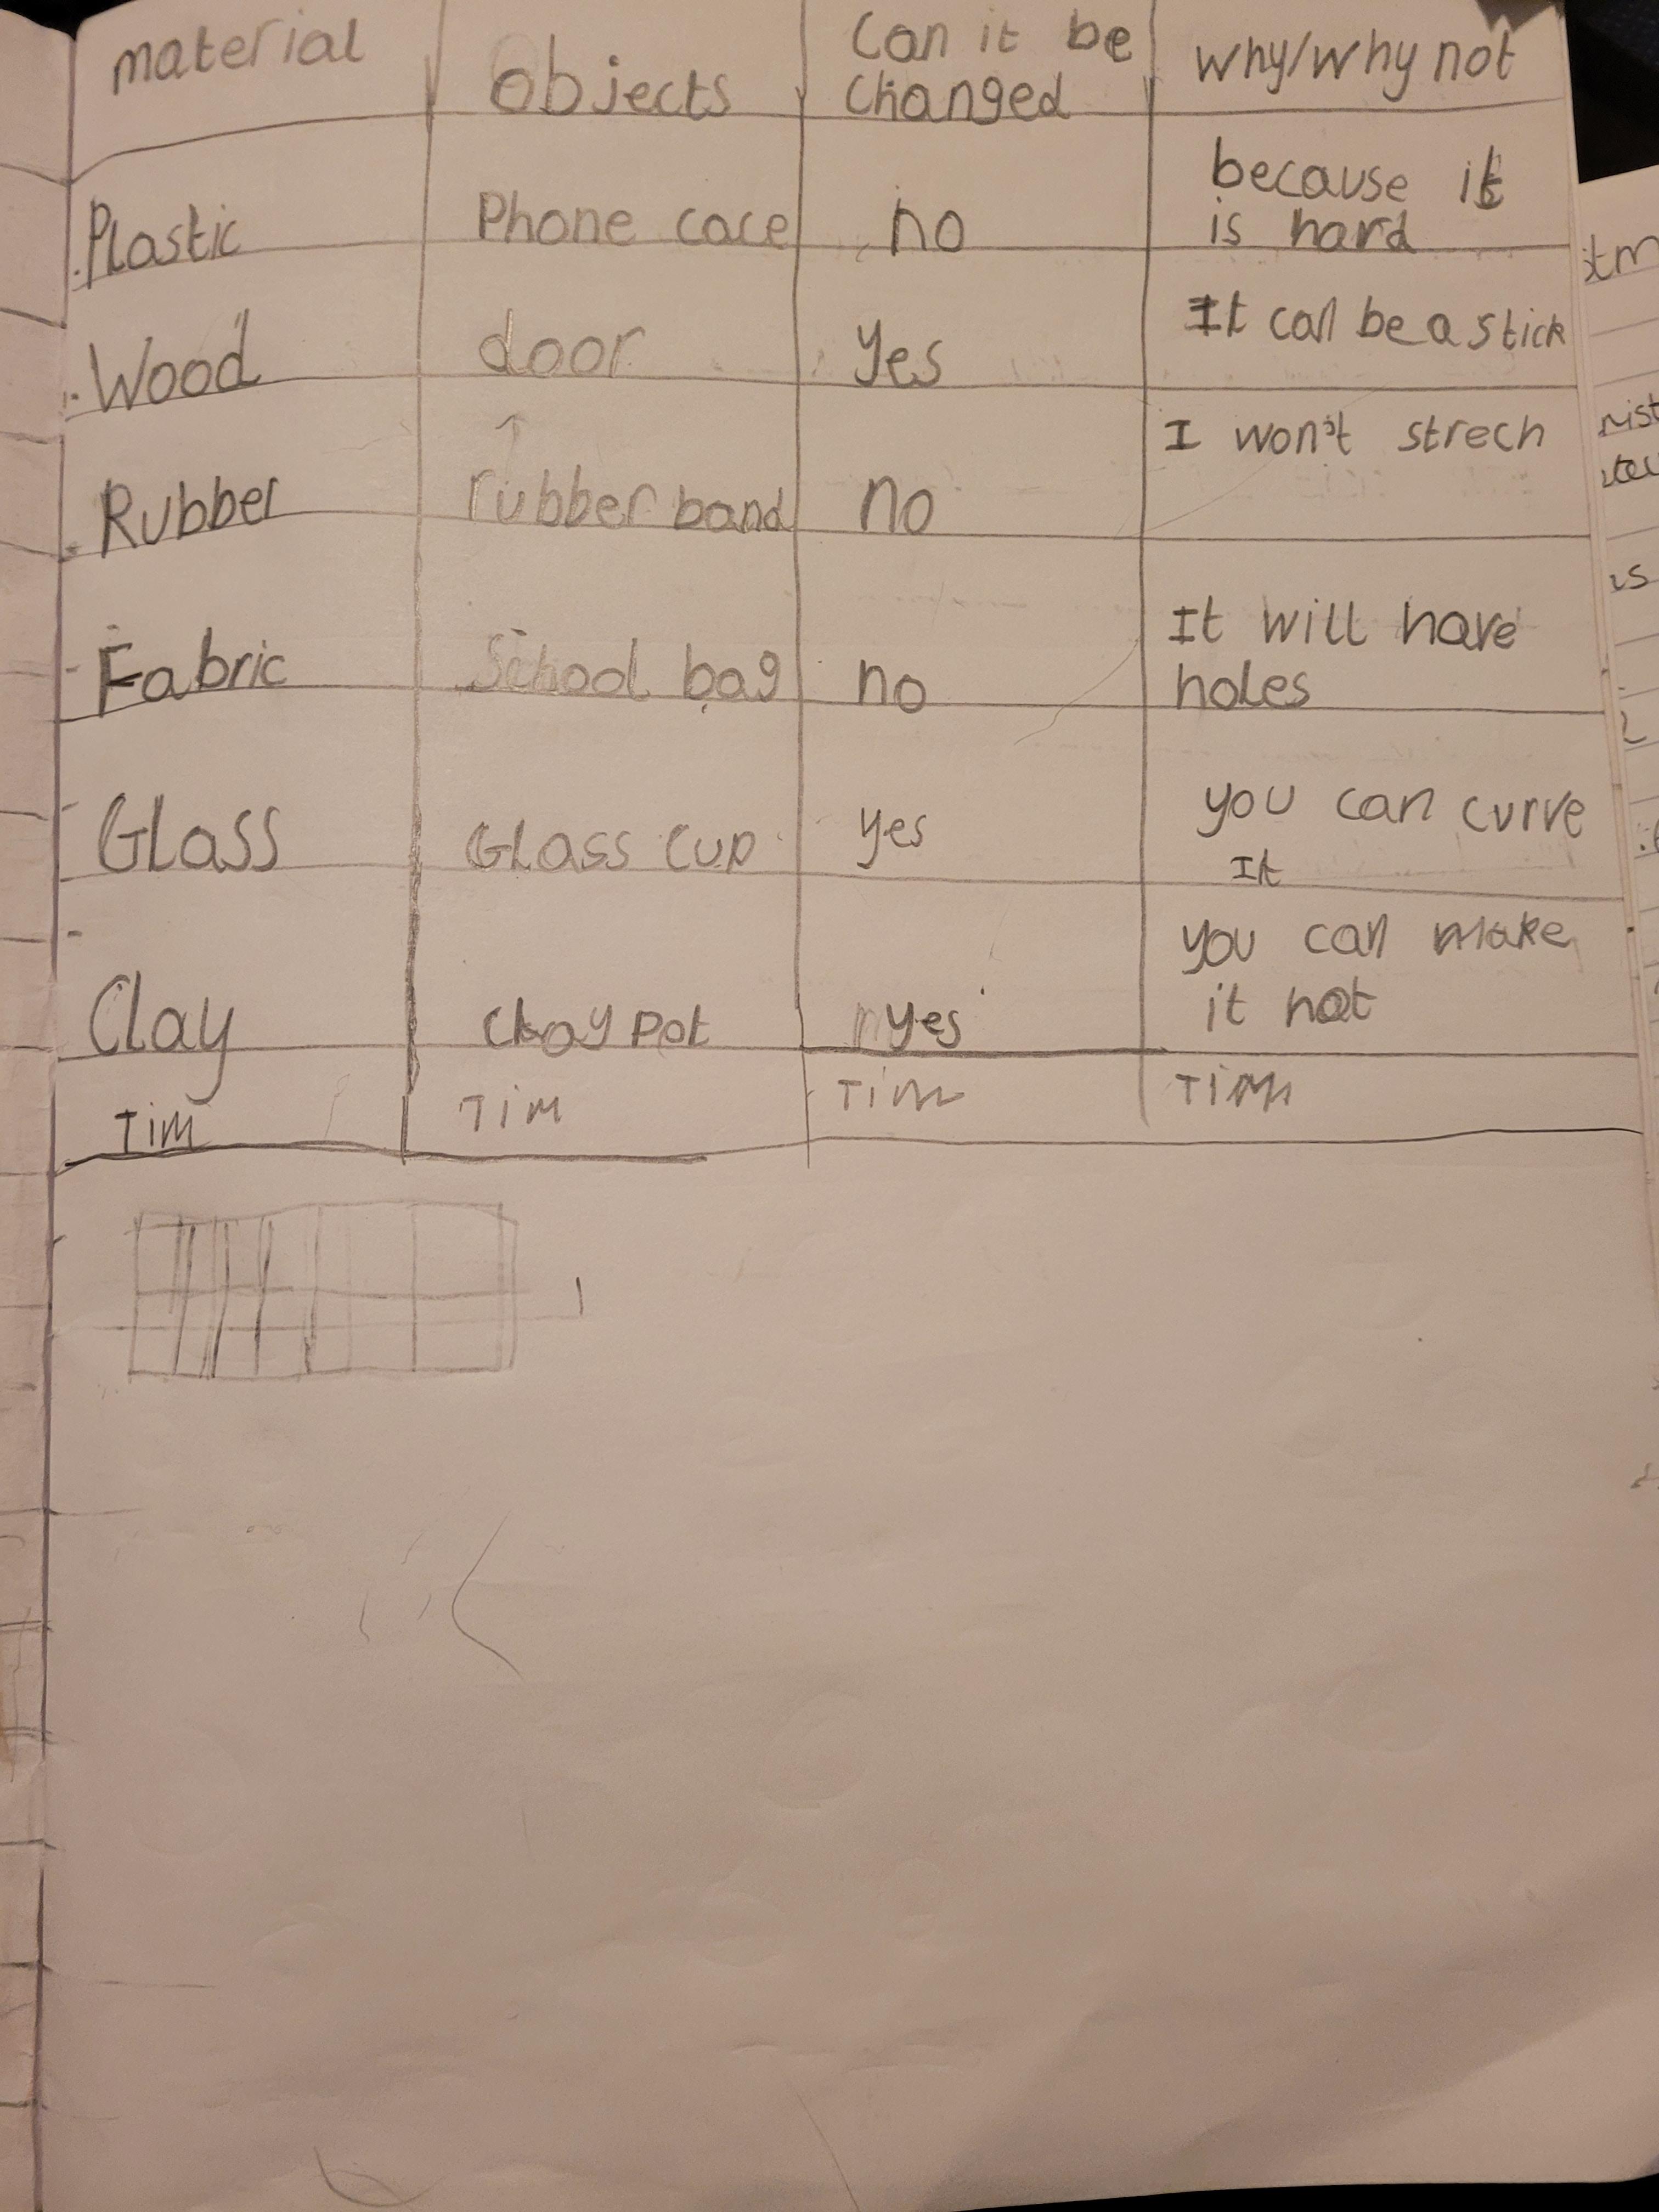 material
objects
Can it be
changed
why/why not
Plastic
Phone cace
no
because it
is hard
Wood
door
yes
It can be a stick
Rubber
rubber band
no
I won't strech
Fabric
School bag
no
It will have
holes
Glass
Glass cup
yes
you can curve
It
Clay
Clay pot
yes
you can make
it hot
Tim
Tim
Tim
Tim